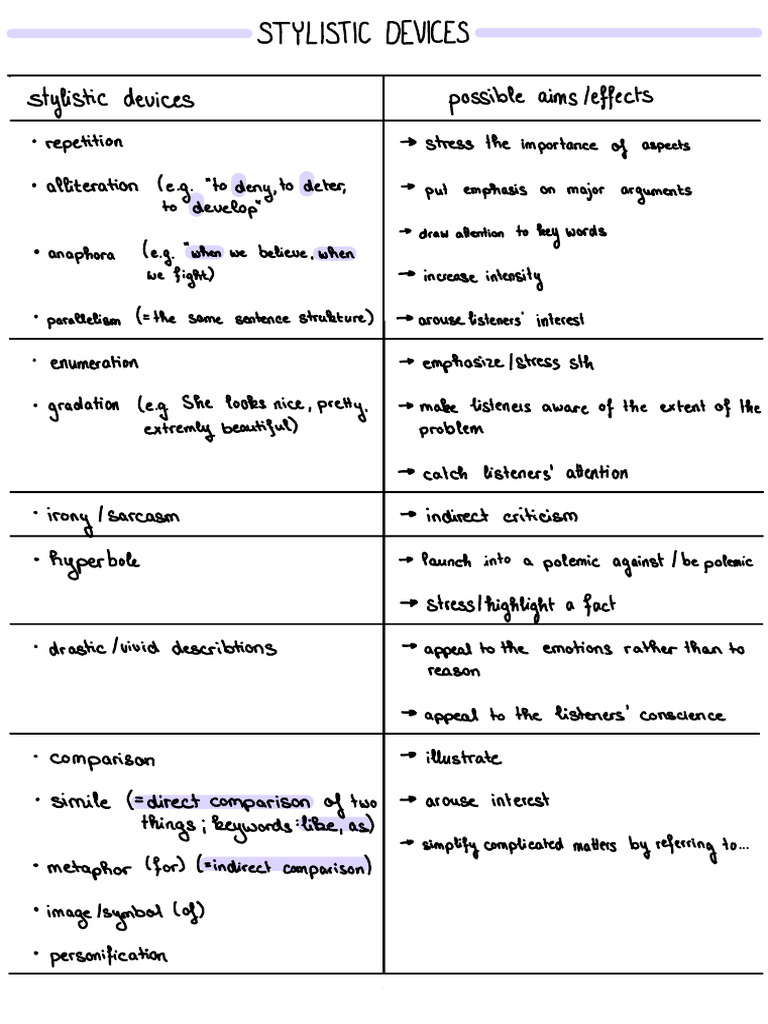 STYLISTIC DEVICES
stylistic devices
possible aims/effects
• repetition
→ stress the importance of aspects
• alliteration (e.g. "to deny, to deter,
to develop"
→ put emphasis on major arguments
→ draw attention to key words
• anaphora (e.g. "when we believe, when
we fight)
→ increase intensity
• parallelism (=the same sentence strukture)
→ arouse listeners' interest
• enumeration
→ emphasize/stress sth
• gradation (e.g. She looks nice, pretty,
extremly beautiful)
→ make listeners aware of the extent of the
problem
→ catch listeners' attention
• irony/sarcasm
→ indirect criticism
• hyperbole
→ launch into a polemic against/be polemic
→ stress/highlight a fact
• drastic/vivid describtions
→ appeal to the emotions rather than to
reason
→ appeal to the listeners' conscience
• comparison
→ illustrate
• simile (=direct comparison of two
things; keywords: like, as)
→ arouse interest
→ simplify complicated matters by referring to...
• metaphor (for) (=indirect comparison)
• image/symbol (of)
• personification